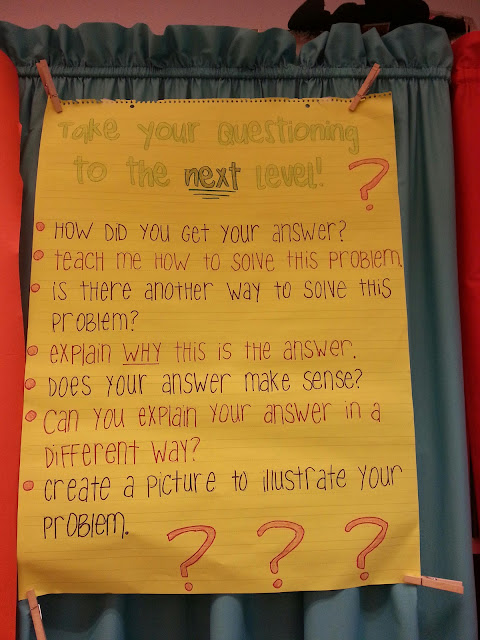 Take your Questioning
to the next Level!
?
• How did you get your answer?
• teach me how to solve this problem.
• is there another way to solve this
problem?
• explain WHY this is the answer.
• Does your answer make sense?
• Can you explain your answer in a
different way?
• create a picture to illustrate your
problem.
? ? ?